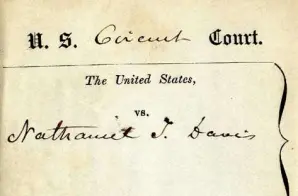 U. S. Circuit Court.
The United States,
vs.
Nathaniel J. Davis